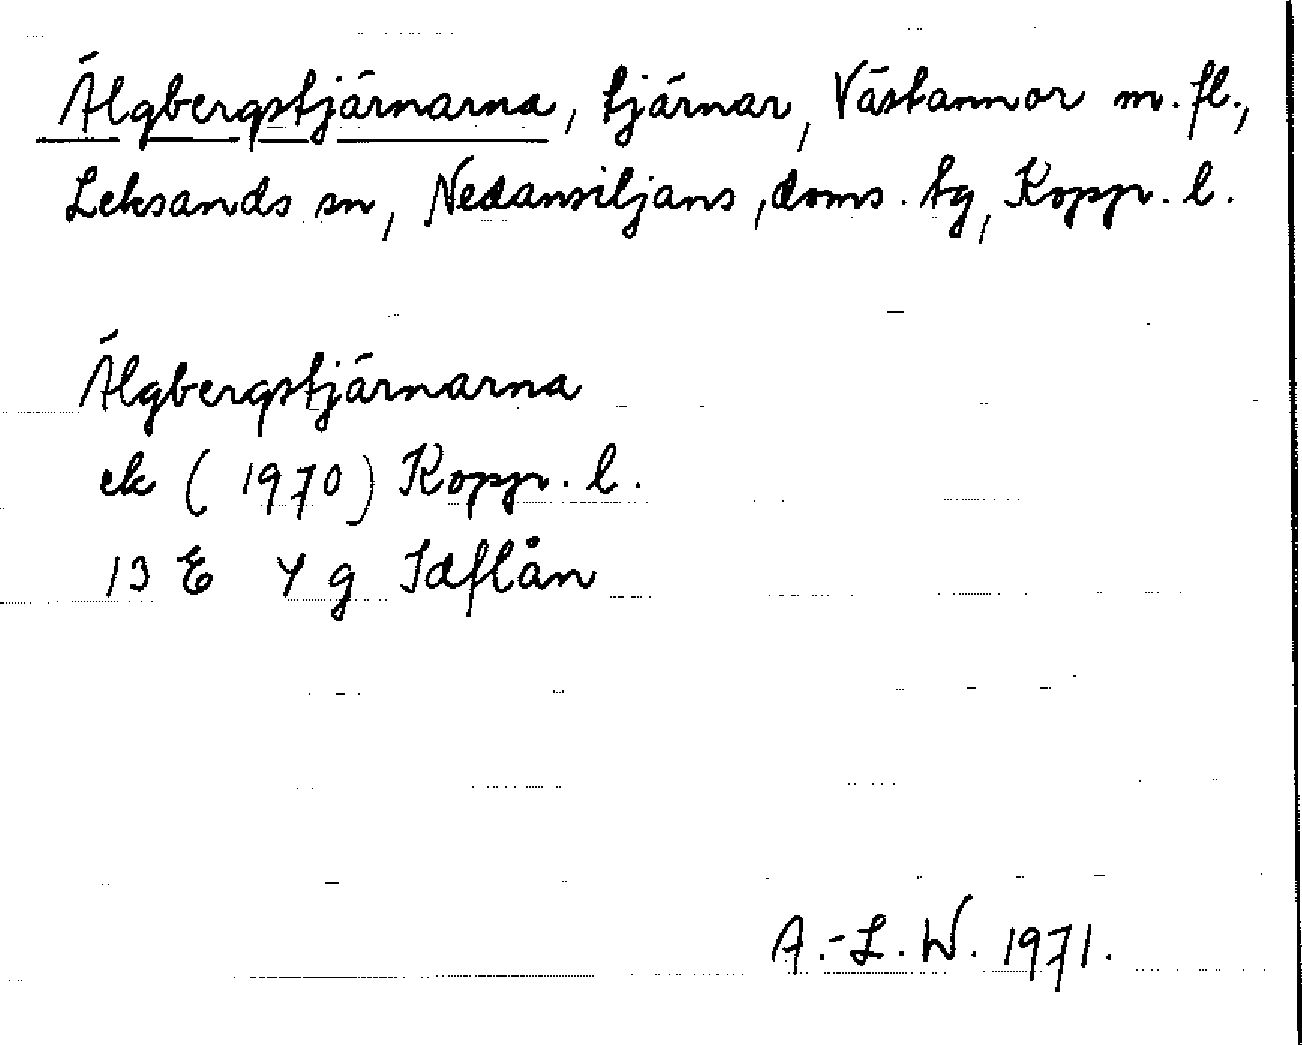 Älgbergstjärnarna, tjärnar, Västannor m. fl.,
Leksands sn, Nedansiljans, doms. tg, Kopp. l.
Älgbergstjärnarna
ek (1970) Kopp. l.
13 E 4 g Idflån
A.-L. W. 1971.